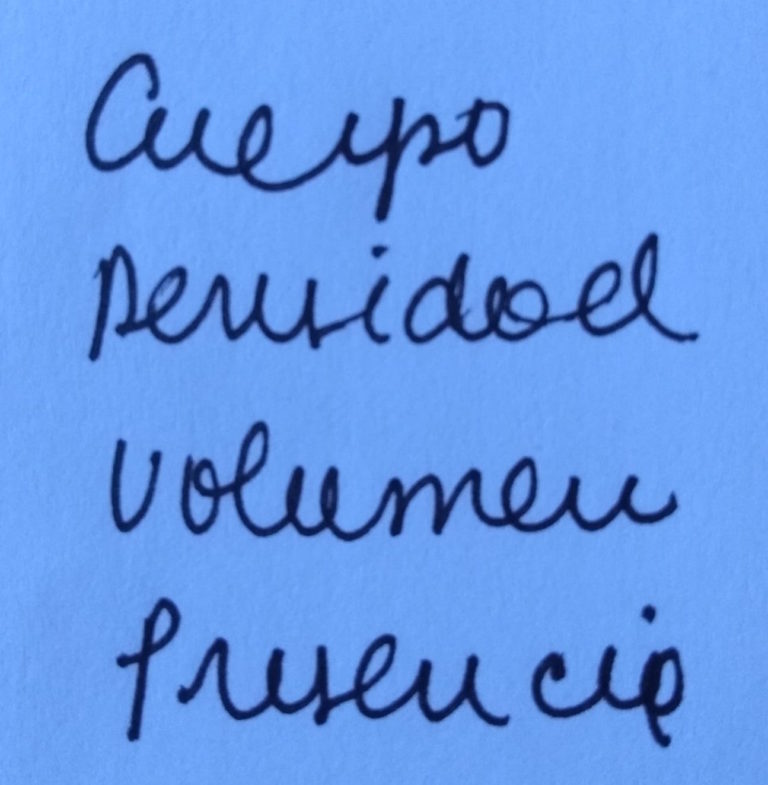 Cuerpo
Densidad
Volumen
Presencia